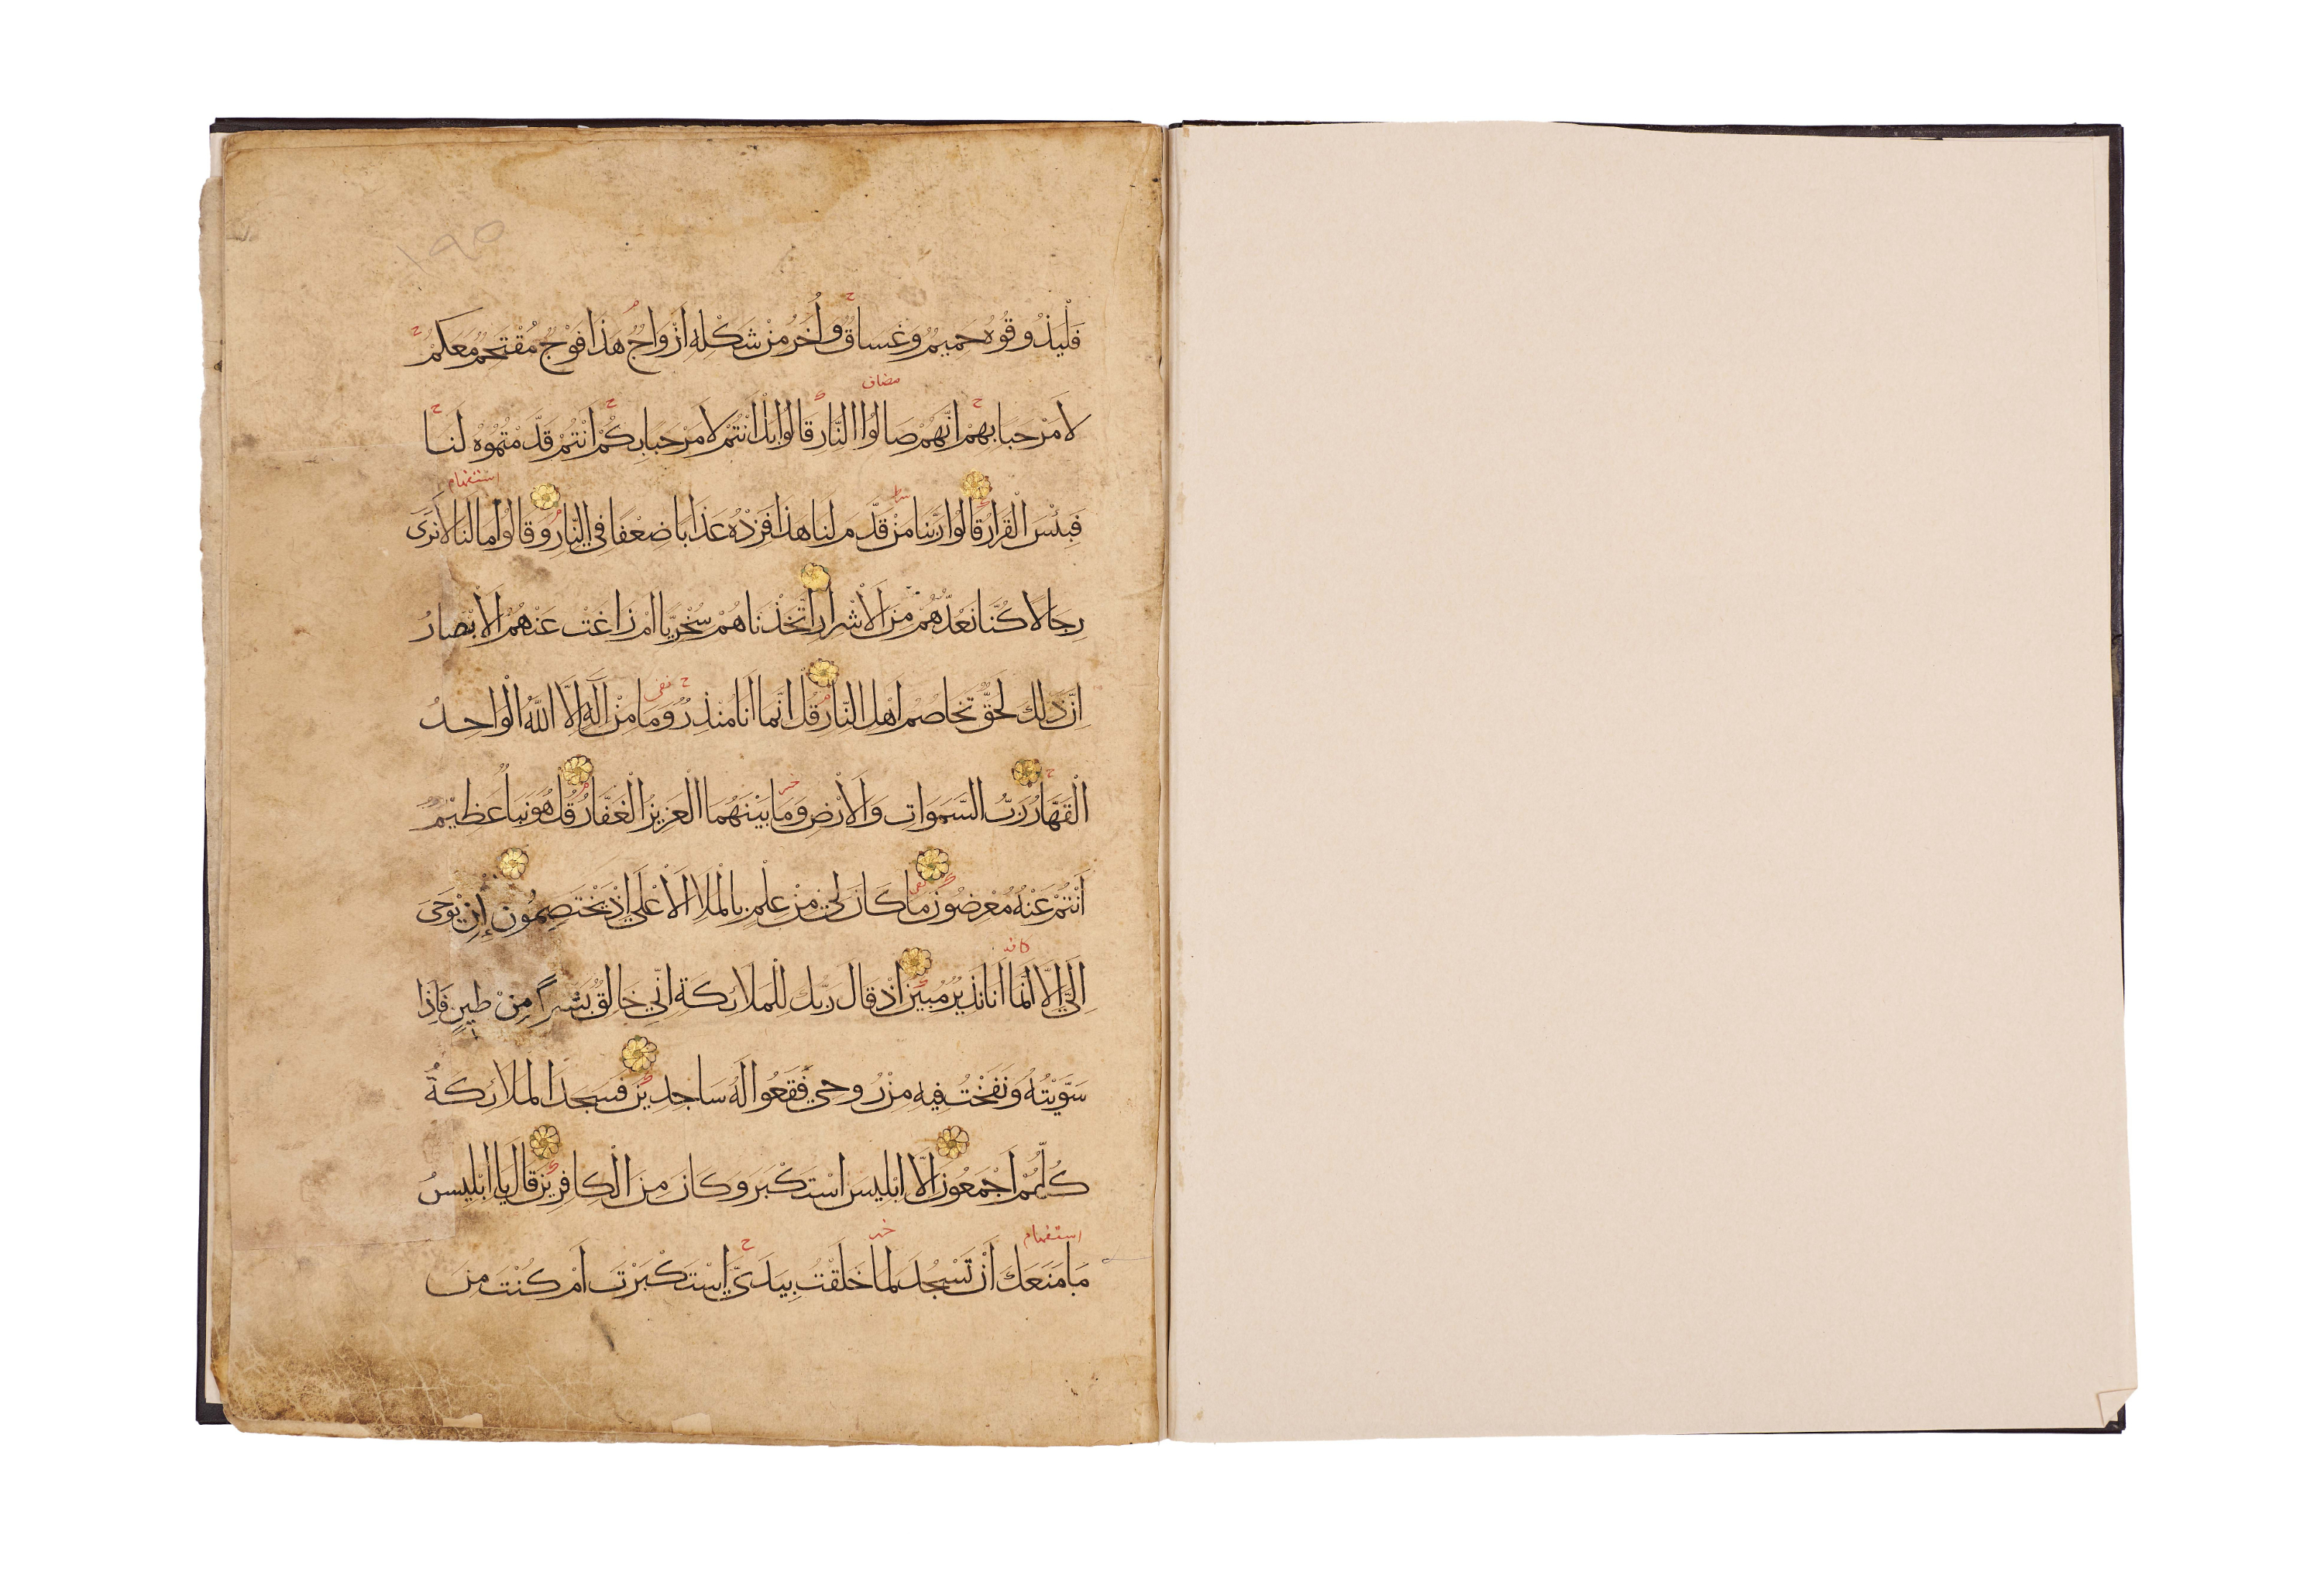 ١٩٥
فَلْيَذُوقُوهُ حَمِيمٌ وَغَسَاقٌ وَأُخَرُ مِنْ شَكْلِهِ اَزْوَاجٌ هَذَا فَوْجٌ مُقْتَحِمٌ مَعَكُمْ
مضاف
لَا مَرْحَبًا بِهِمْ اِنَّهُمْ صَالُوا النَّارِ قَالُوا بَلْ اَنْتُمْ لَا مَرْحَبًا بِكُمْ اَنْتُمْ قَدَّمْتُمُوهُ لَنَا
استفهام
فَبِئْسَ الْقَرَارُ قَالُوا رَبَّنَا مَنْ قَدَّمَ لَنَا هَذَا فَزِدْهُ عَذَابًا ضِعْفًا فِي النَّارِ وَقَالُوا مَا لَنَا لَا نَرَى
رِجَالًا كُنَّا نَعُدُّهُمْ مِنَ الْاَشْرَارِ اَتَّخَذْنَاهُمْ سُخْرِيًّا اَمْ زَاغَتْ عَنْهُمُ الْاَبْصَارُ
نفى
اِنَّ ذَلِكَ لَحَقٌّ تَخَاصُمُ اَهْلِ النَّارِ قُلْ اِنَّمَا اَنَا مُنْذِرٌ وَمَا مِنْ اِلَهٍ اِلَّا اللَّهُ الْوَاحِدُ
خبر
الْقَهَّارُ رَبُّ السَّمَوَاتِ وَالْاَرْضِ وَمَا بَيْنَهُمَا الْعَزِيزُ الْغَفَّارُ قُلْ هُوَ نَبَأٌ عَظِيمٌ
نفى
اَنْتُمْ عَنْهُ مُعْرِضُونَ مَا كَانَ لِيَ مِنْ عِلْمٍ بِالْمَلَاِ الْاَعْلَى اِذْ يَخْتَصِمُونَ إِنْ يُوحَى
كافه
اِلَيَّ اِلَّا اَنَّمَا اَنَا نَذِيرٌ مُبِينٌ اِذْ قَالَ رَبُّكَ لِلْمَلَائِكَةِ اِنِّي خَالِقٌ بَشَرًا مِنْ طِينٍ فَاِذَا
سَوَّيْتُهُ وَنَفَخْتُ فِيهِ مِنْ رُوحِي فَقَعُوا لَهُ سَاجِدِينَ فَسَجَدَ الْمَلَائِكَةُ
كُلُّهُمْ اَجْمَعُونَ اِلَّا اِبْلِيسَ اسْتَكْبَرَ وَكَانَ مِنَ الْكَافِرِينَ قَالَ يَا اِبْلِيسُ
استفهام خبر
مَا مَنَعَكَ اَنْ تَسْجُدَ لِمَا خَلَقْتُ بِيَدَيَّ اِسْتَكْبَرْتَ اَمْ كُنْتَ مِنَ